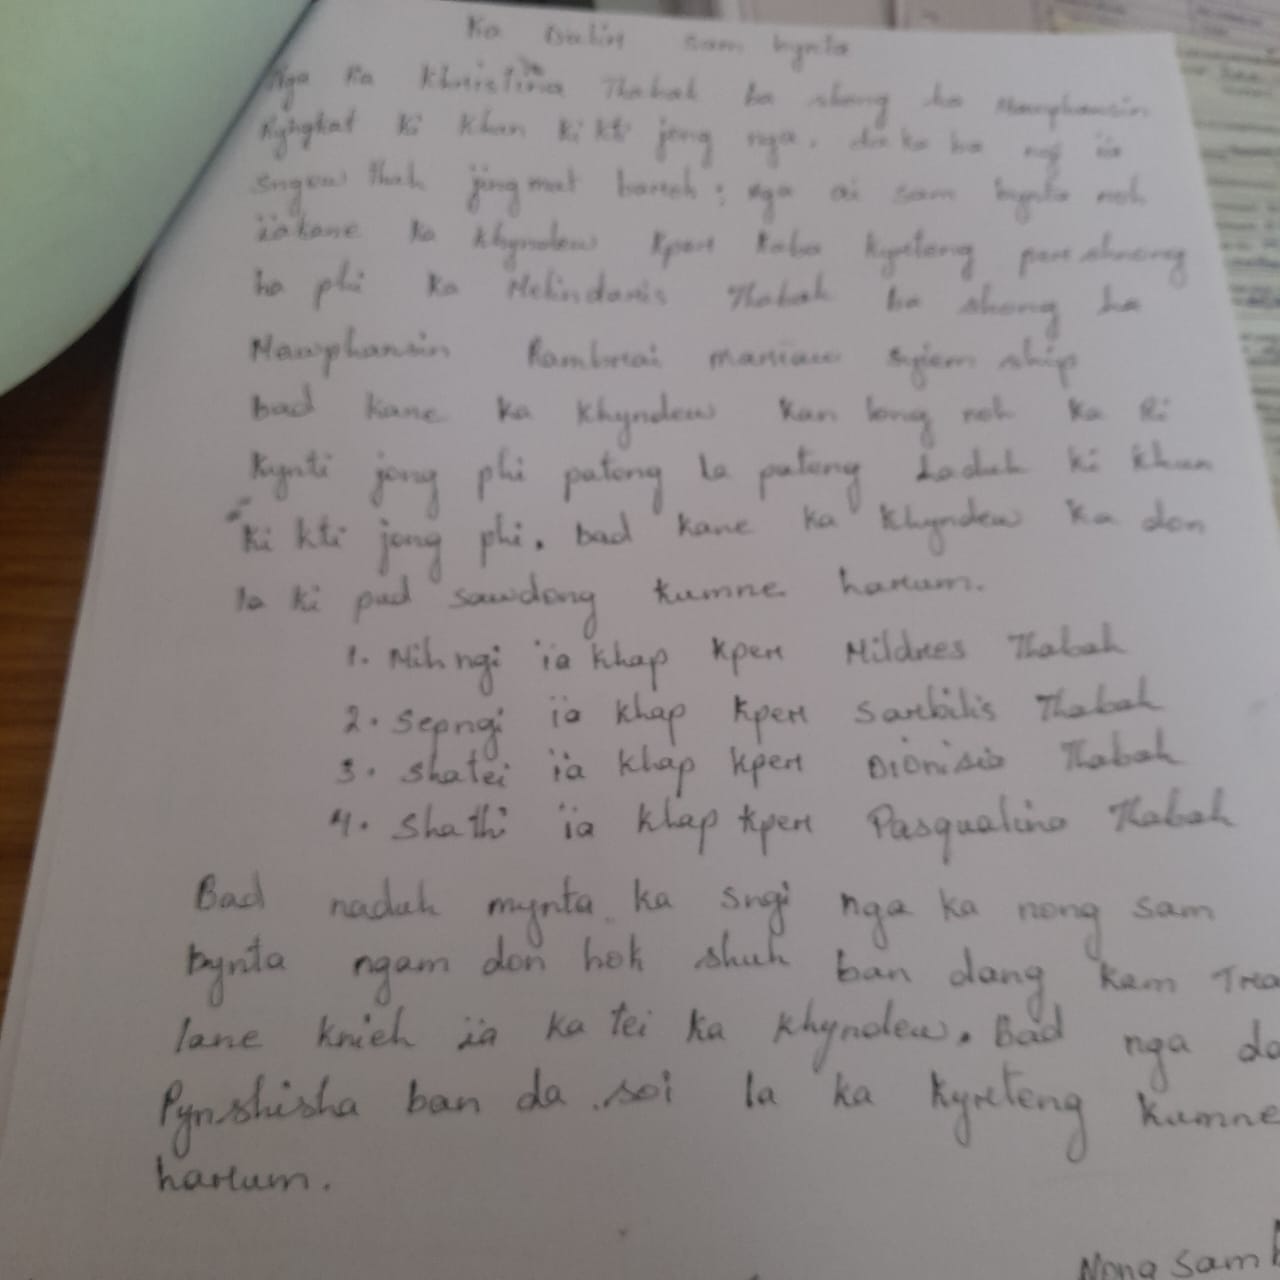 Ka Dulir sam bynta
Nga Ka Khristina Thabah ba shong ha Mawphansin
Ryngkat ki khun ki kti jong nga, da ka ba ngi ïa
sngew thuh jingmut baroh; nga ai sam bynta noh
ïakane ka khyndew kper kaba kyrteng per shnong
ha phi ka Melindaris Thabah ba shong ha
Mawphansin Rambrai syiem ship
bad kane ka khyndew kan long noh ka Ri
Kynti jong phi pateng la pateng haduh ki khun
ki kti jong phi. bad kane ka khyndew ka don
la ki pud sawdong kumne harum.
1. Mihngi ïa khap kper Mildres Thabah
2. Sepngi ïa khap kper Sarbilis Thabah
3. Shatei ïa khap kper Dionisio Thabah
4. Shathi ïa khap kper Pasqualino Thabah
Bad naduh mynta ka sngi nga ka nong sam
bynta ngam don hok shuh ban dang kam
lane knieh ïa ka tei ka khyndew. Bad nga
Pynshisha ban da soi la ka kyrteng kumne
harum.
Nong sam